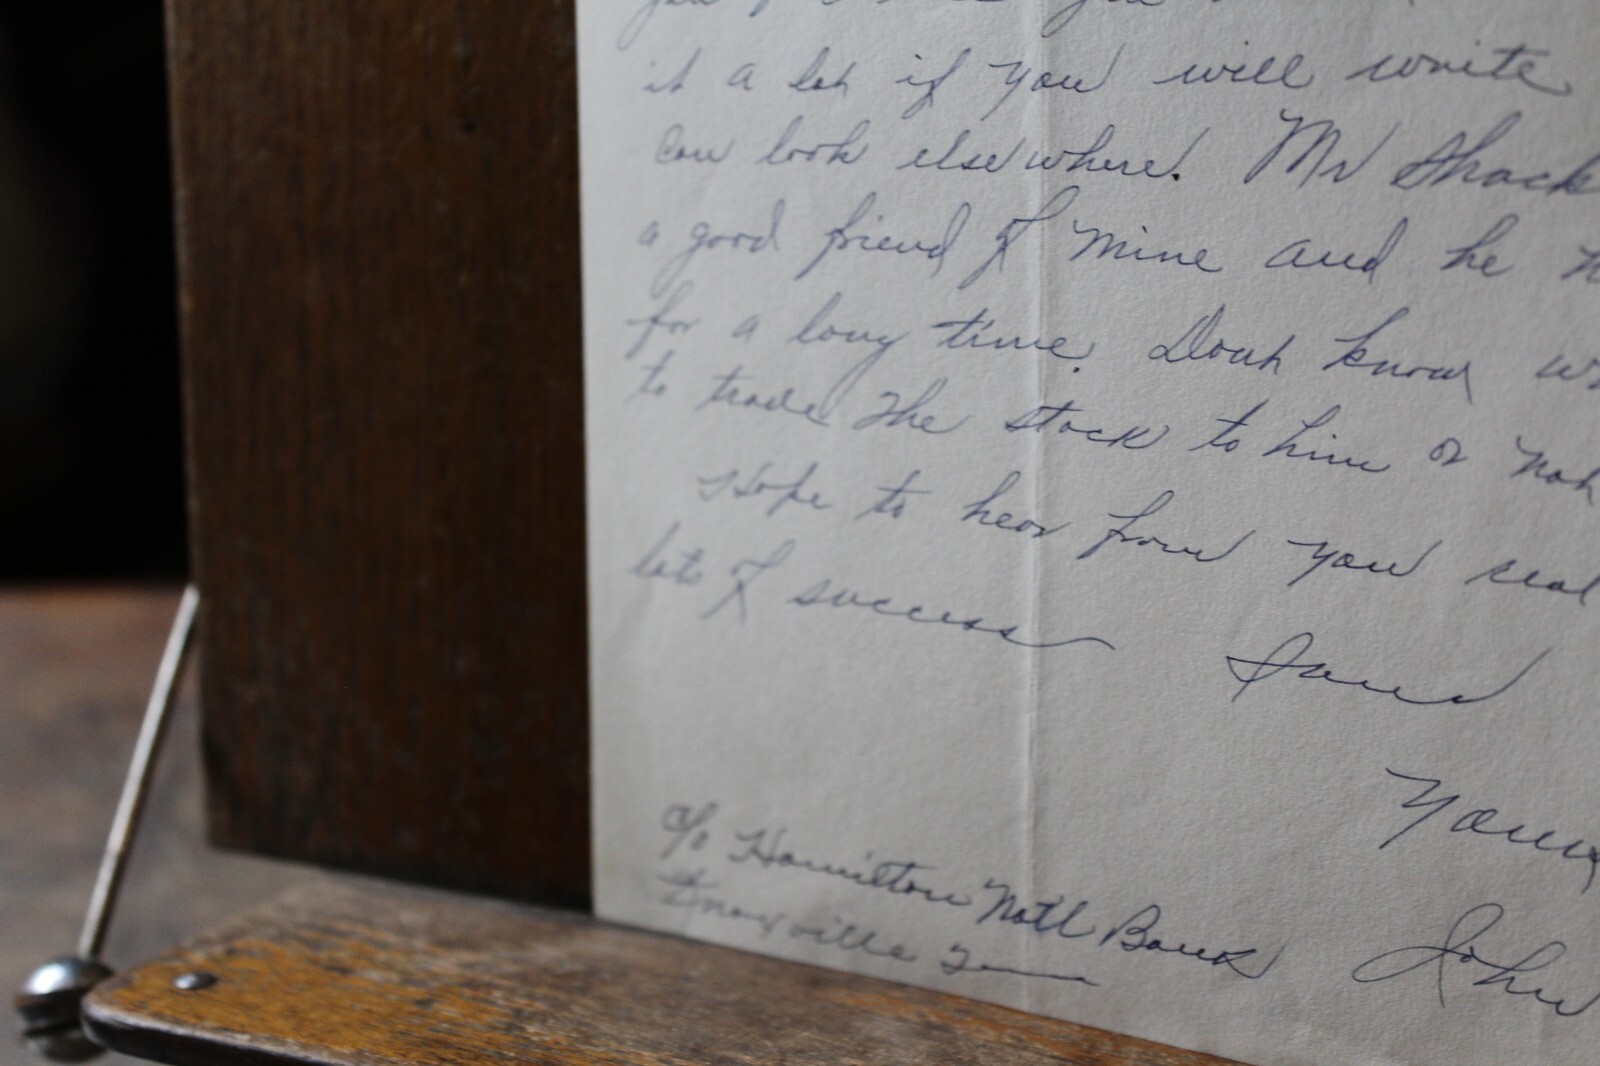 it a lot if you will write
can look elsewhere. Mr Shack
a good friend of mine and he
for a long time. Dont know
to trade the stock to him or not
Hope to hear from you real
lots of success
Yours
John
c/o Hamilton Natl Bank
Knoxville Tenn